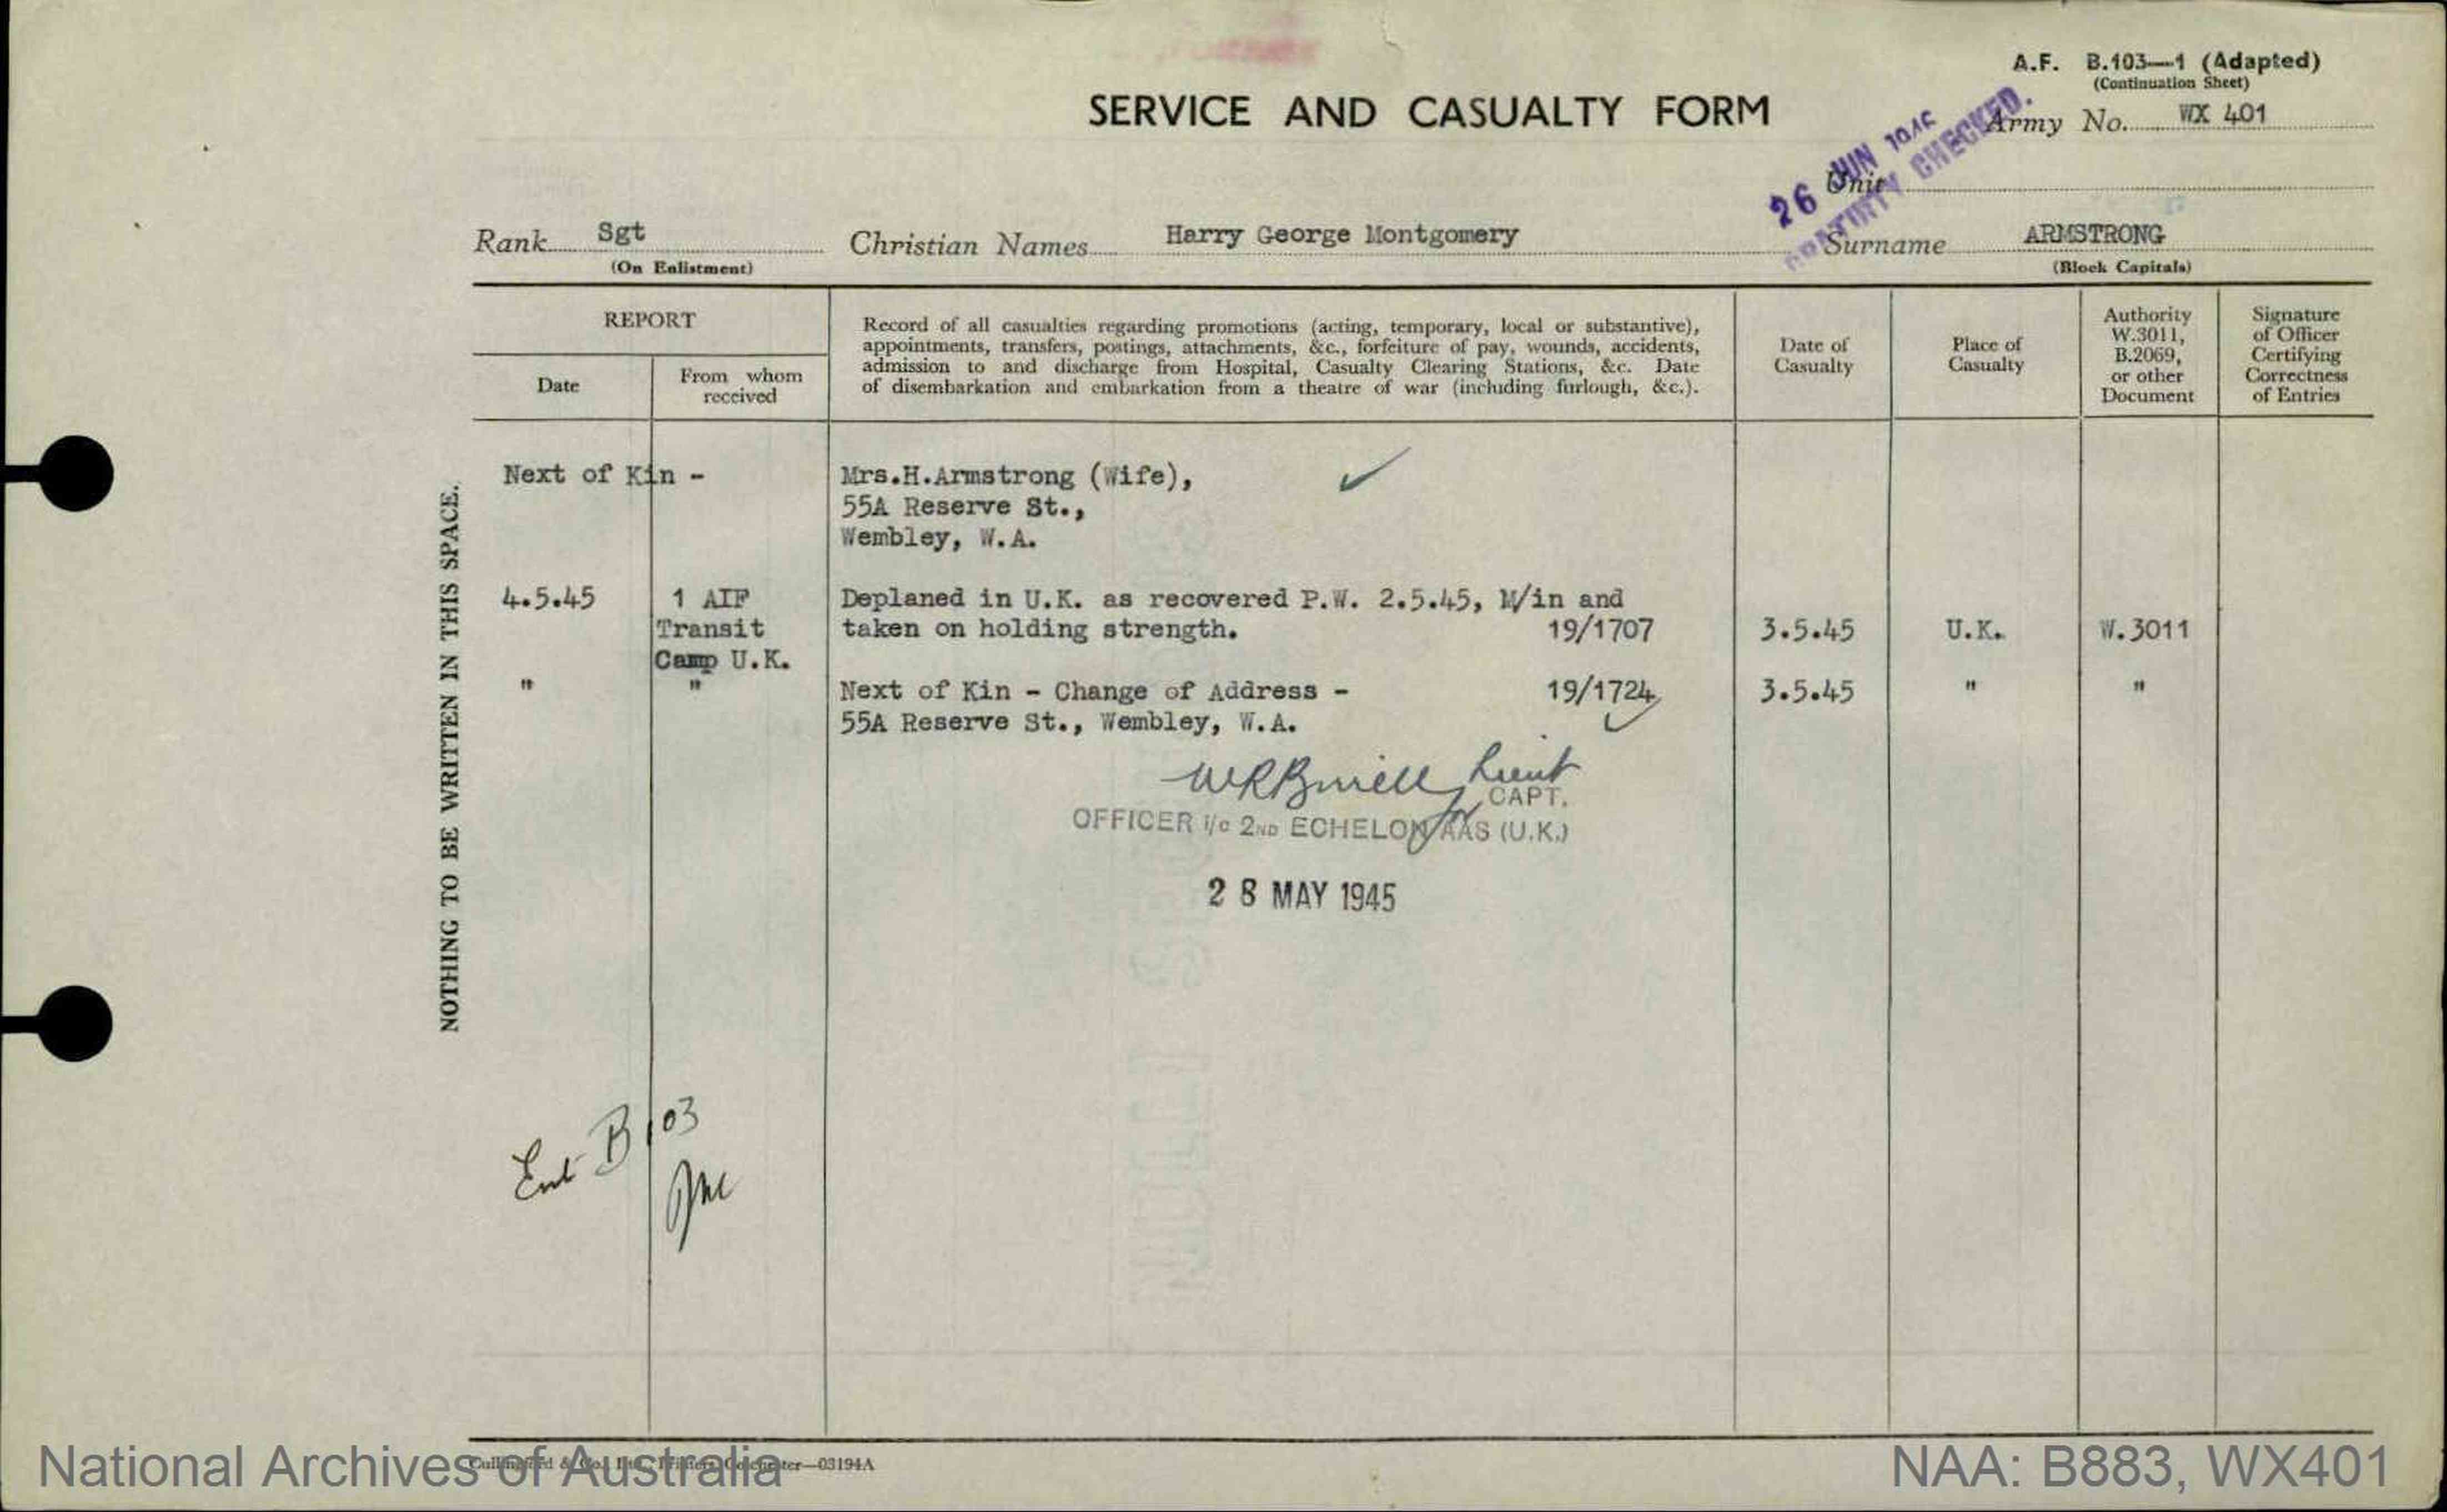 A.F. B.103—1 (Adapted)
(Continuation Sheet)
SERVICE AND CASUALTY FORM
Army No. WX 401
26 JUN 1945
CHECKED.
Unit
Rank Sgt Christian Names Harry George Montgomery Surname ARMSTRONG
(On Enlistment) (Block Capitals)
REPORT
Date
From whom
received
Record of all casualties regarding promotions (acting, temporary, local or substantive),
appointments, transfers, postings, attachments, &c., forfeiture of pay, wounds, accidents,
admission to and discharge from Hospital, Casualty Clearing Stations, &c. Date
of disembarkation and embarkation from a theatre of war (including furlough, &c.).
Date of
Casualty
Place of
Casualty
Authority
W.3011,
B.2069,
or other
Document
Signature
of Officer
Certifying
Correctness
of Entries
NOTHING TO BE WRITTEN IN THIS SPACE.
Next of Kin - Mrs.H.Armstrong (Wife),
55A Reserve St.,
Wembley, W.A.
4.5.45 1 AIF Deplaned in U.K. as recovered P.W. 2.5.45, M/in and
Transit taken on holding strength. 19/1707 3.5.45 U.K. W.3011
Camp U.K.
" " Next of Kin - Change of Address - 19/1724 3.5.45 " "
55A Reserve St., Wembley, W.A.
Lieut
CAPT.
OFFICER i/c 2ND ECHELON AAS (U.K.)
28 MAY 1945
Ent B103
National Archives of Australia
03194A
NAA: B883, WX401